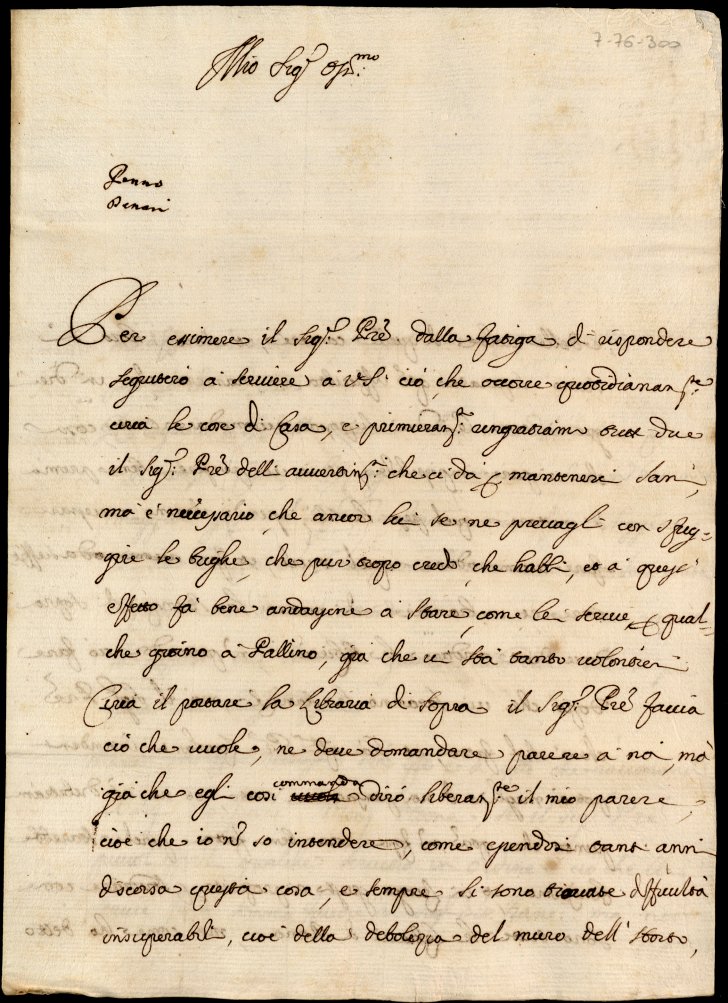 7-76-300
Illio Sigr Ossmo
Penno
Denari
Per essimere il Sigr: Pre. dalla fatiga di rispondere
seguiterò a scrivere à V.S. ciò, che occorre quotidianamte:
circa le cose di Casa, e primieramte: ringratiamo tutt due
il Sigr: Pre dell' avvertimti: che ci dà p mantenerci sani,
mà è necessario, che ancor lei se ne prevagli con sfug=
gire le brighe, che pur tropo credo, che habbi, et à questo
effetto fà bene andarsene a stare, come lei scrive, p qual=
che giorno à Pallino, già che vi stà tanto volontieri
Circa il portare la Libraria di sopra il Sigr: Pre faccia
ciò che vuole, ne deve domandare parere à noi, mà
già che egli così commanda dirò liberamte: il mio parere,
cioè che io nn so intendere, come essendosi tant' anni
discorsa questa cosa, e sempre si sono trovate difficultà
insuperabili, cioè della debolezza del muro dell' Horto,